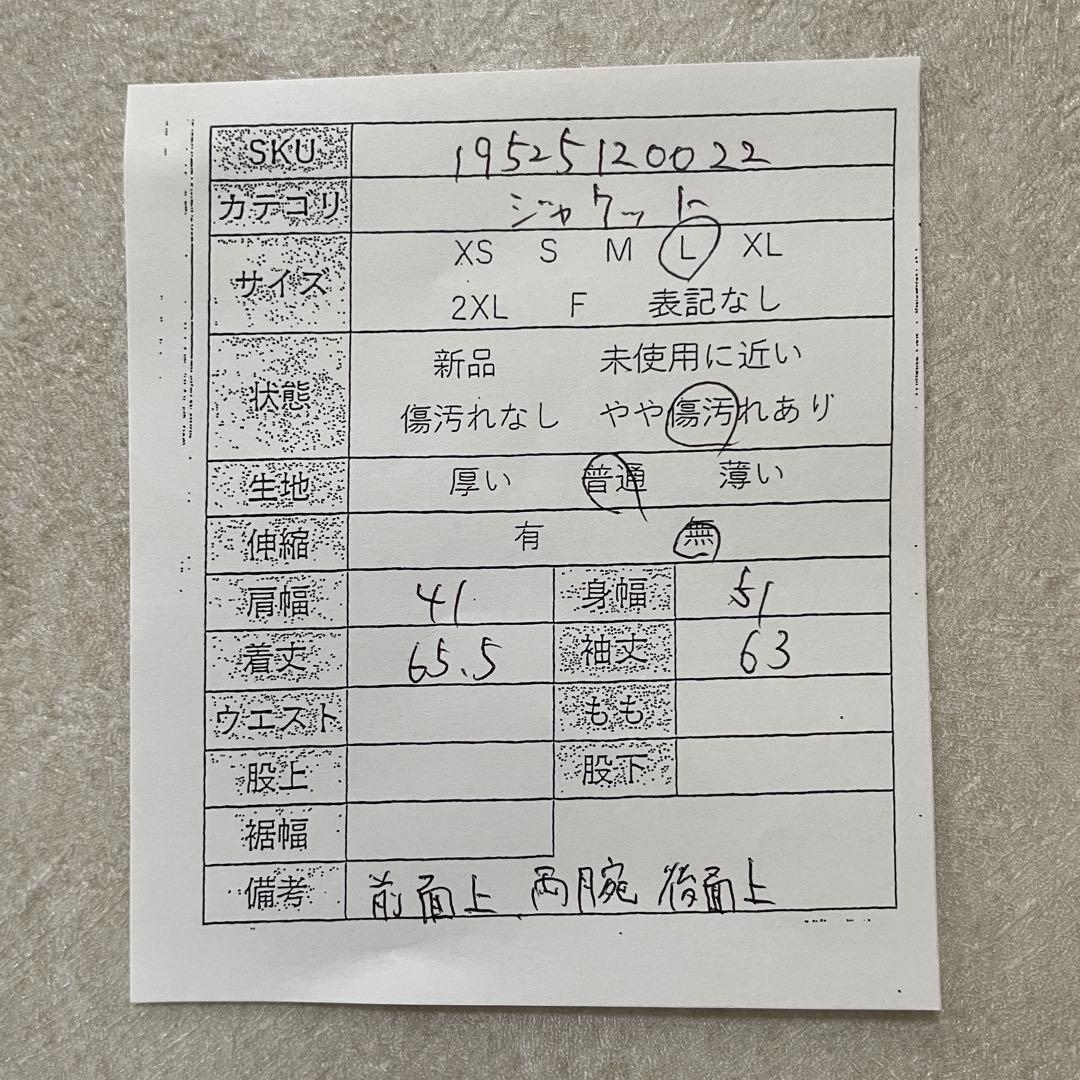 SKU 19525120022
カテゴリ ジャケット
サイズ XS S M L XL
2XL F 表記なし
状態 新品 未使用に近い
傷汚れなし やや傷汚れあり
生地 厚い 普通 薄い
伸縮 有 無
肩幅 41 身幅 51
着丈 65.5 袖丈 63
ウエスト もも
股上 股下
裾幅
備考 前面上 両腕 後面上